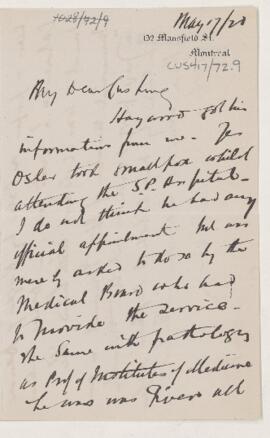 1028/72/9
May 17/20
132 Mansfield St.
Montreal
CUS417/72.9
My Dear Cushing
Haywood got his
information from me. Yes
Osler took smallpox whilst
attending the S.P. Hospital.
I do not think he had any
official appointment but was
merely asked to do so by the
Medical Board who had
to provide the service.
The same with pathology
as Prof of Institutes of Medicine
he was was given all